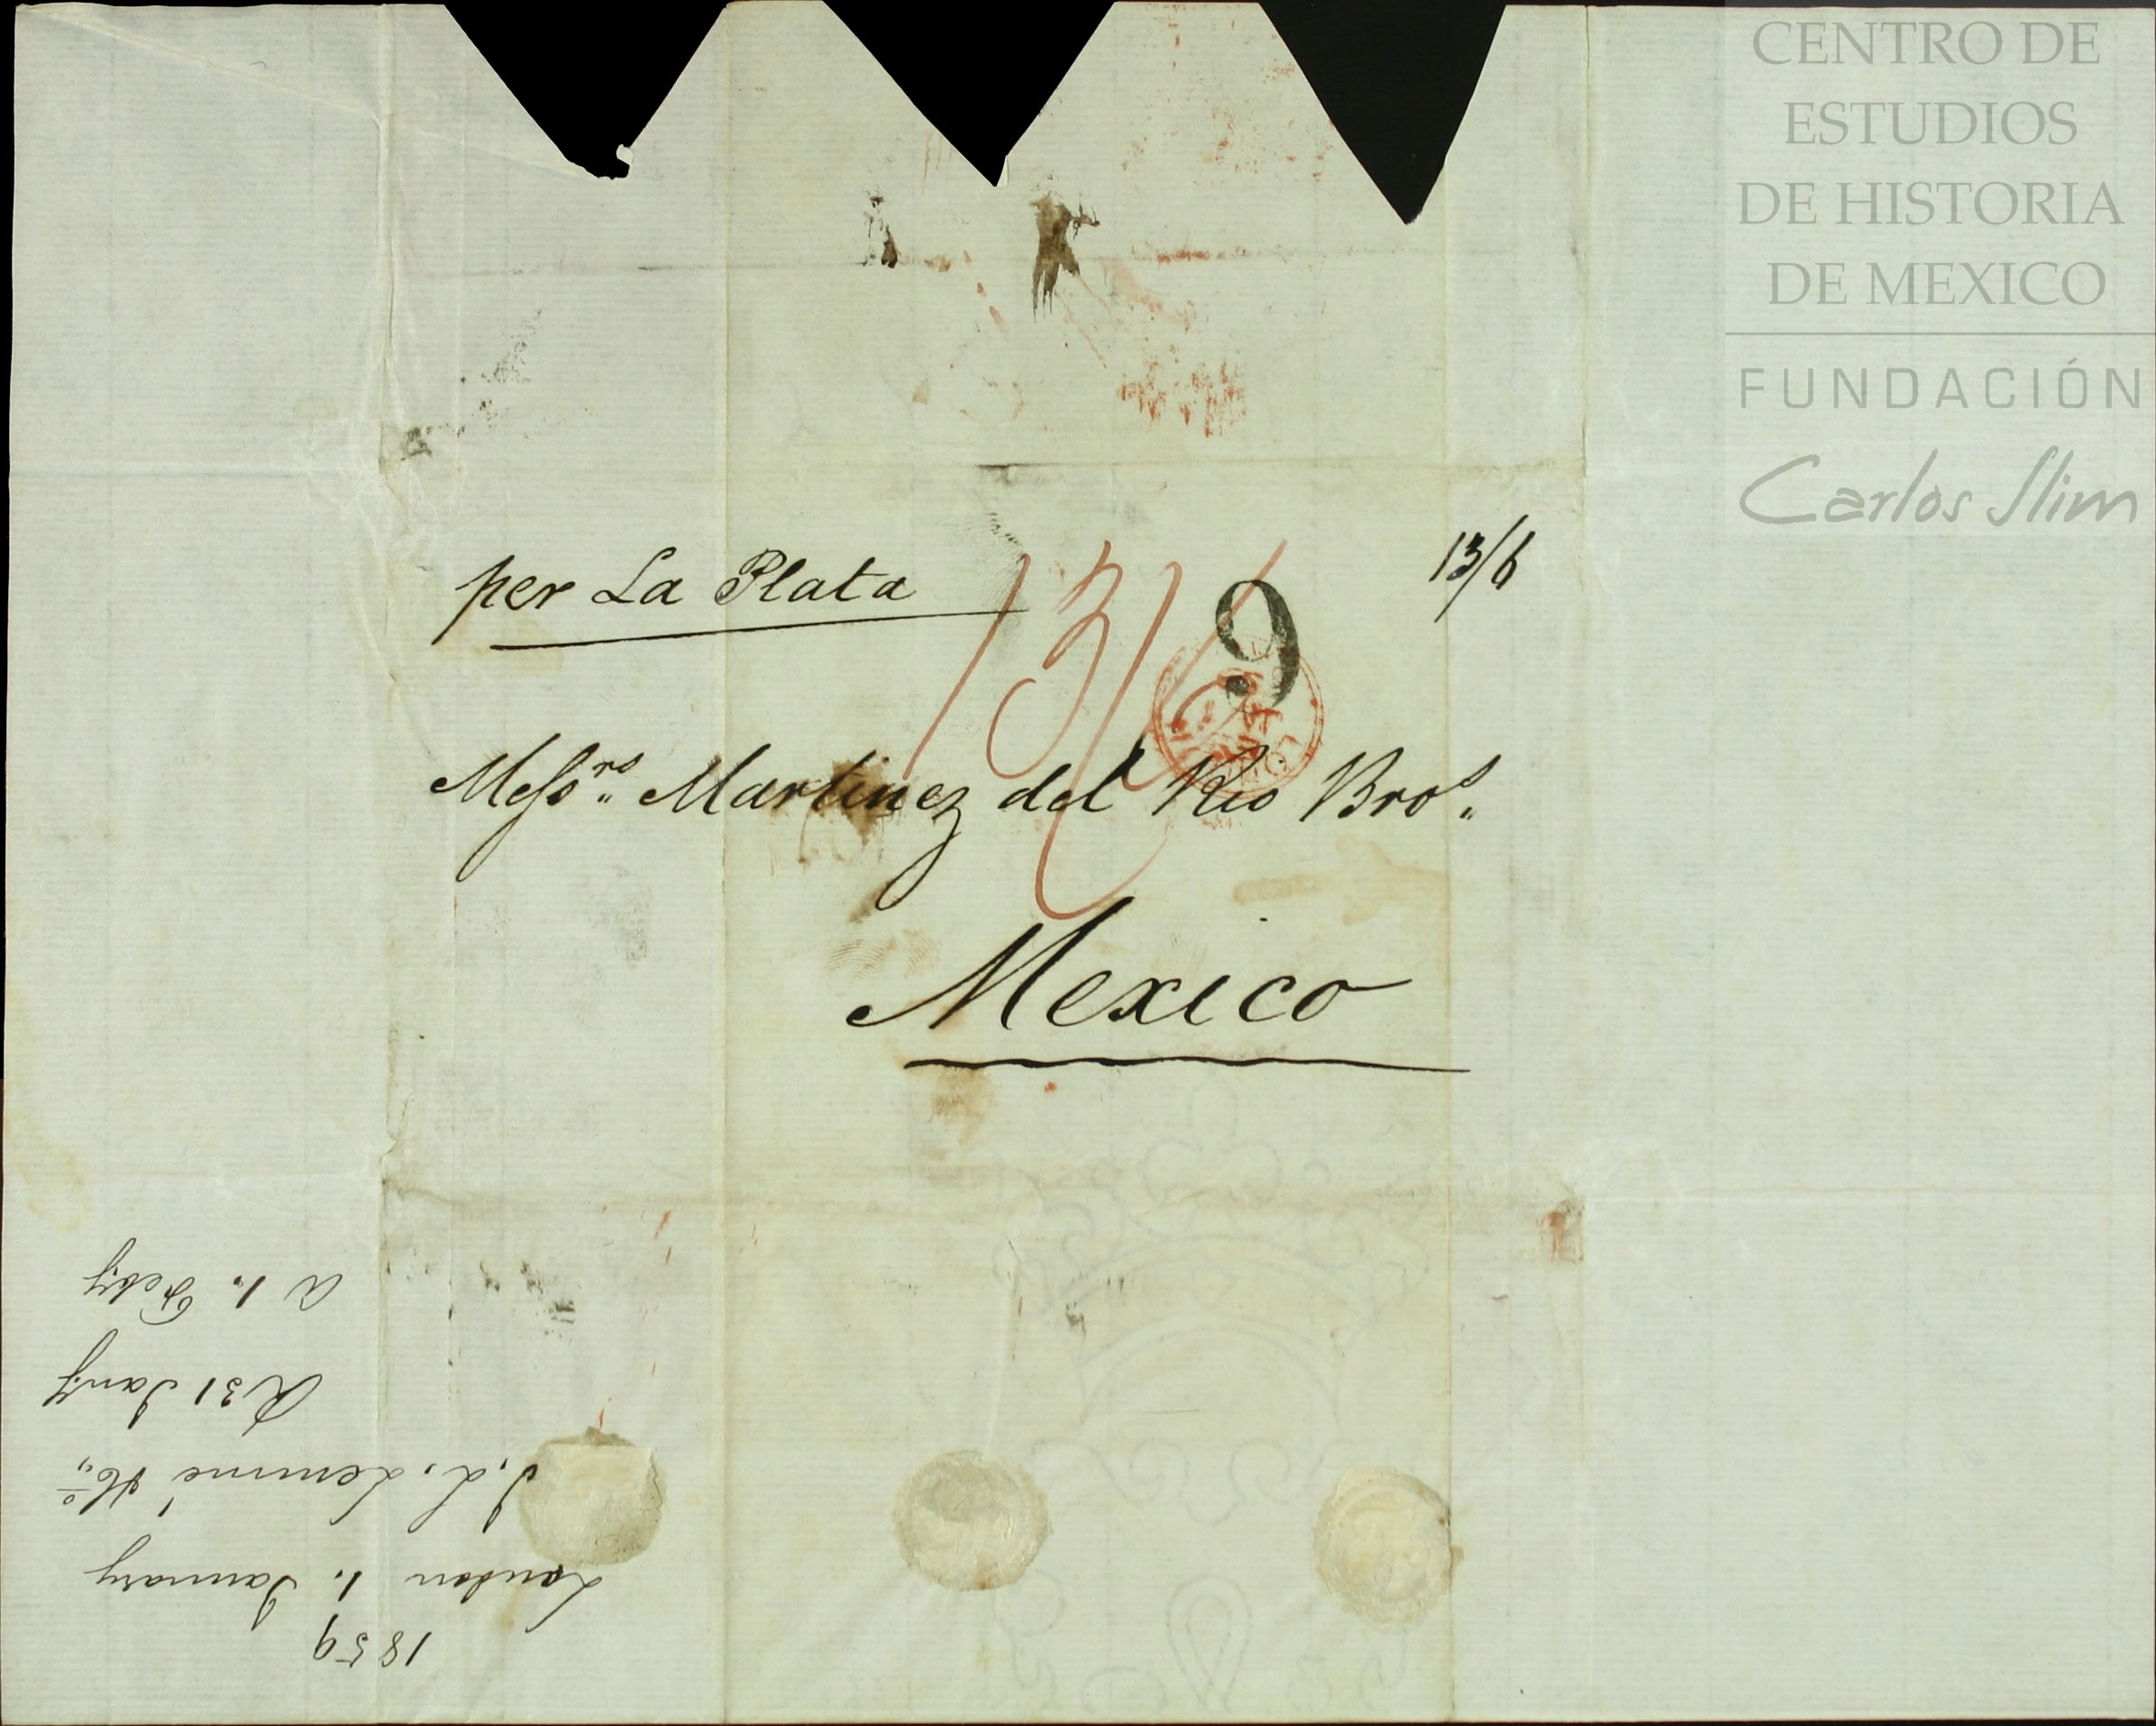 CENTRO DE
ESTUDIOS
DE HISTORIA
DE MEXICO
FUNDACIÓN
Carlos Slim
per La Plata
13/6
13/6
9
Messrs. Martinez del Rio Bros.
Mexico
1859
London 1. January
J. L. Lemmé & Co.,
R 31 Jany
A 1. Feby